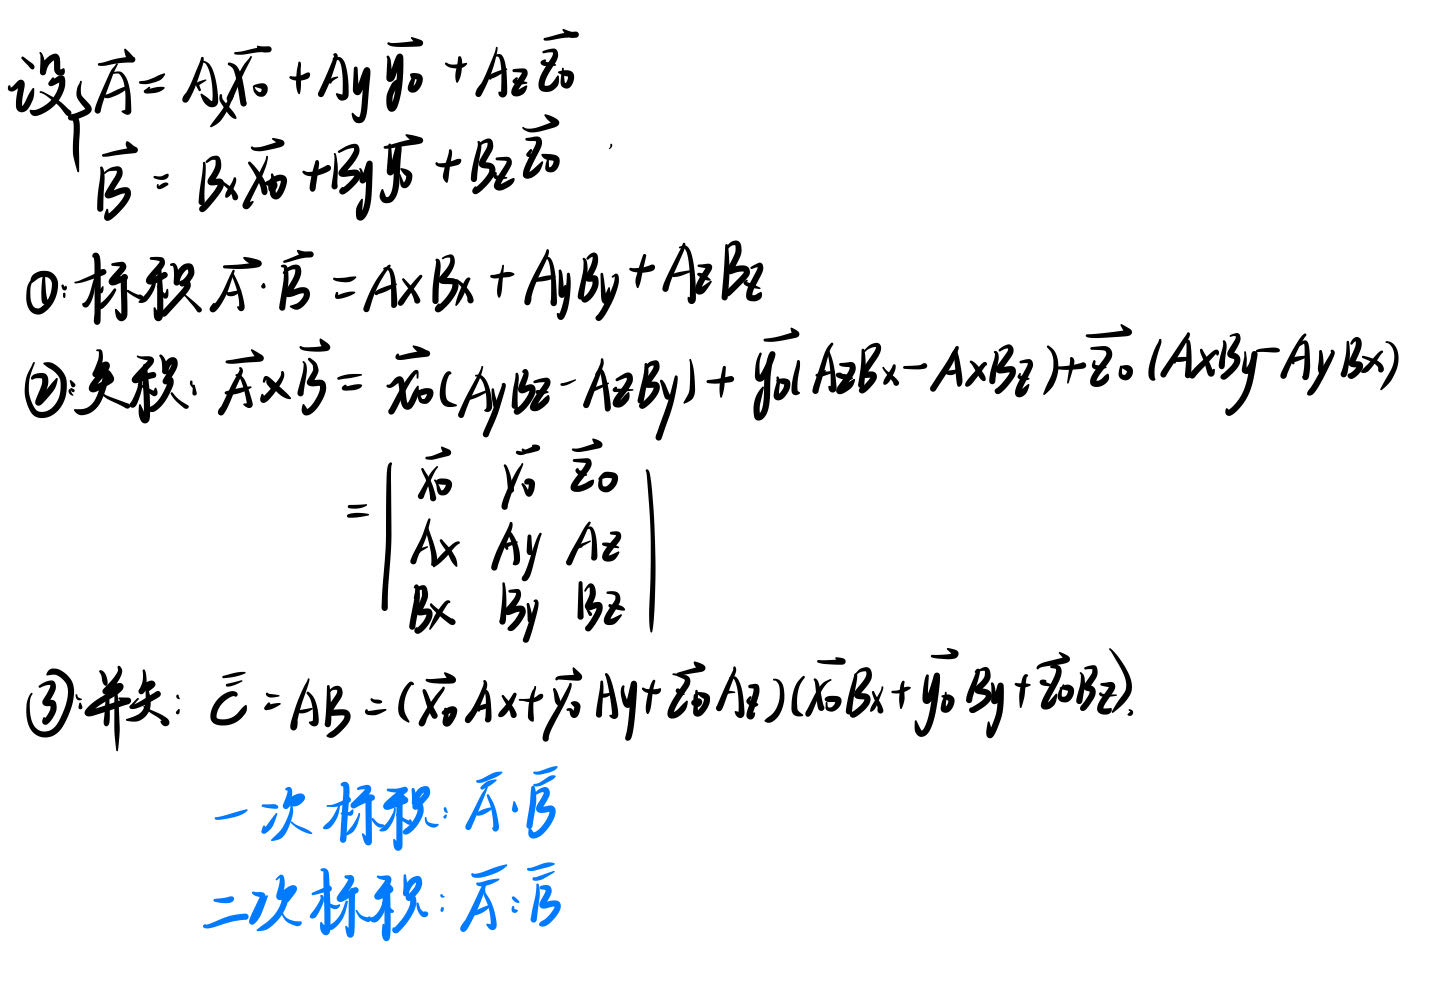 设 { A⃗ = Aₓx⃗₀ + A_y y⃗₀ + A_z z⃗₀
B⃗ = Bₓx⃗₀ + B_y y⃗₀ + B_z z⃗₀
①: 标积 A⃗·B⃗ = AₓBₓ + A_yB_y + A_zB_z
②: 矢积: A⃗×B⃗ = x⃗₀(A_yB_z - A_zB_y) + y⃗₀(A_zBₓ - AₓB_z) + z⃗₀(AₓB_y - A_yBₓ)
= | x⃗₀ y⃗₀ z⃗₀ |
| Aₓ A_y A_z |
| Bₓ B_y B_z |
③: 并矢: C̿ = AB = (x⃗₀Aₓ + y⃗₀A_y + z⃗₀A_z)(x⃗₀Bₓ + y⃗₀B_y + z⃗₀B_z).
一次标积: A̿·B̿
二次标积: A̿:B̿